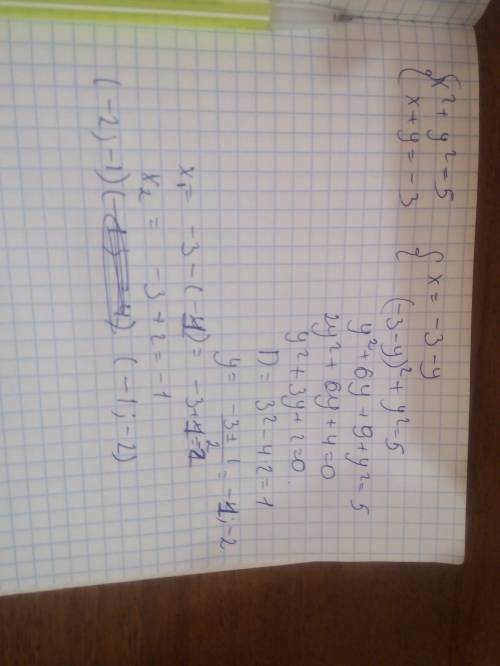 { x² + y² = 5
{ x + y = -3
{ x = -3 - y
(-3-y)² + y² = 5
y² + 6y + 9 + y² = 5
2y² + 6y + 4 = 0
y² + 3y + 2 = 0
D = 3² - 4 2 = 1
x₂ = -3 + 2 = -1
(-2; -1) (-1; -2)